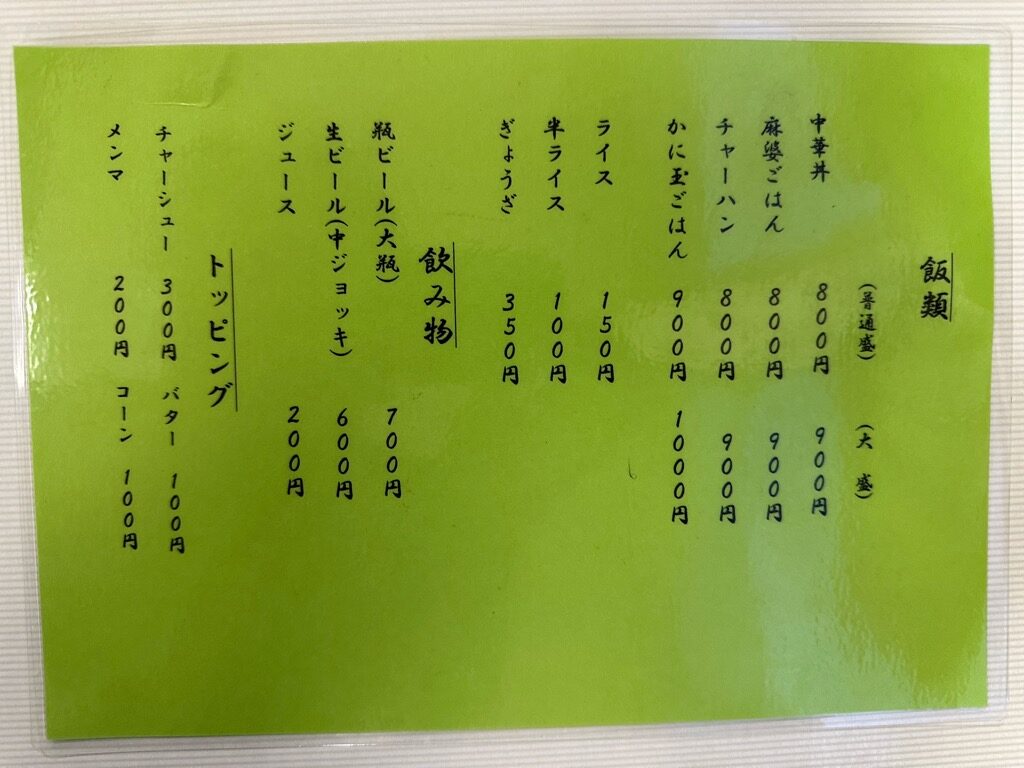 飯類
(普通盛) (大 盛)
中華丼 800円 900円
麻婆ごはん 800円 900円
チャーハン 800円 900円
かに玉ごはん 900円 1000円
ライス 150円
半ライス 100円
ぎょうざ 350円
飲み物
瓶ビール(大瓶) 700円
生ビール(中ジョッキ) 600円
ジュース 200円
トッピング
チャーシュー 300円 バター 100円
メンマ 200円 コーン 100円